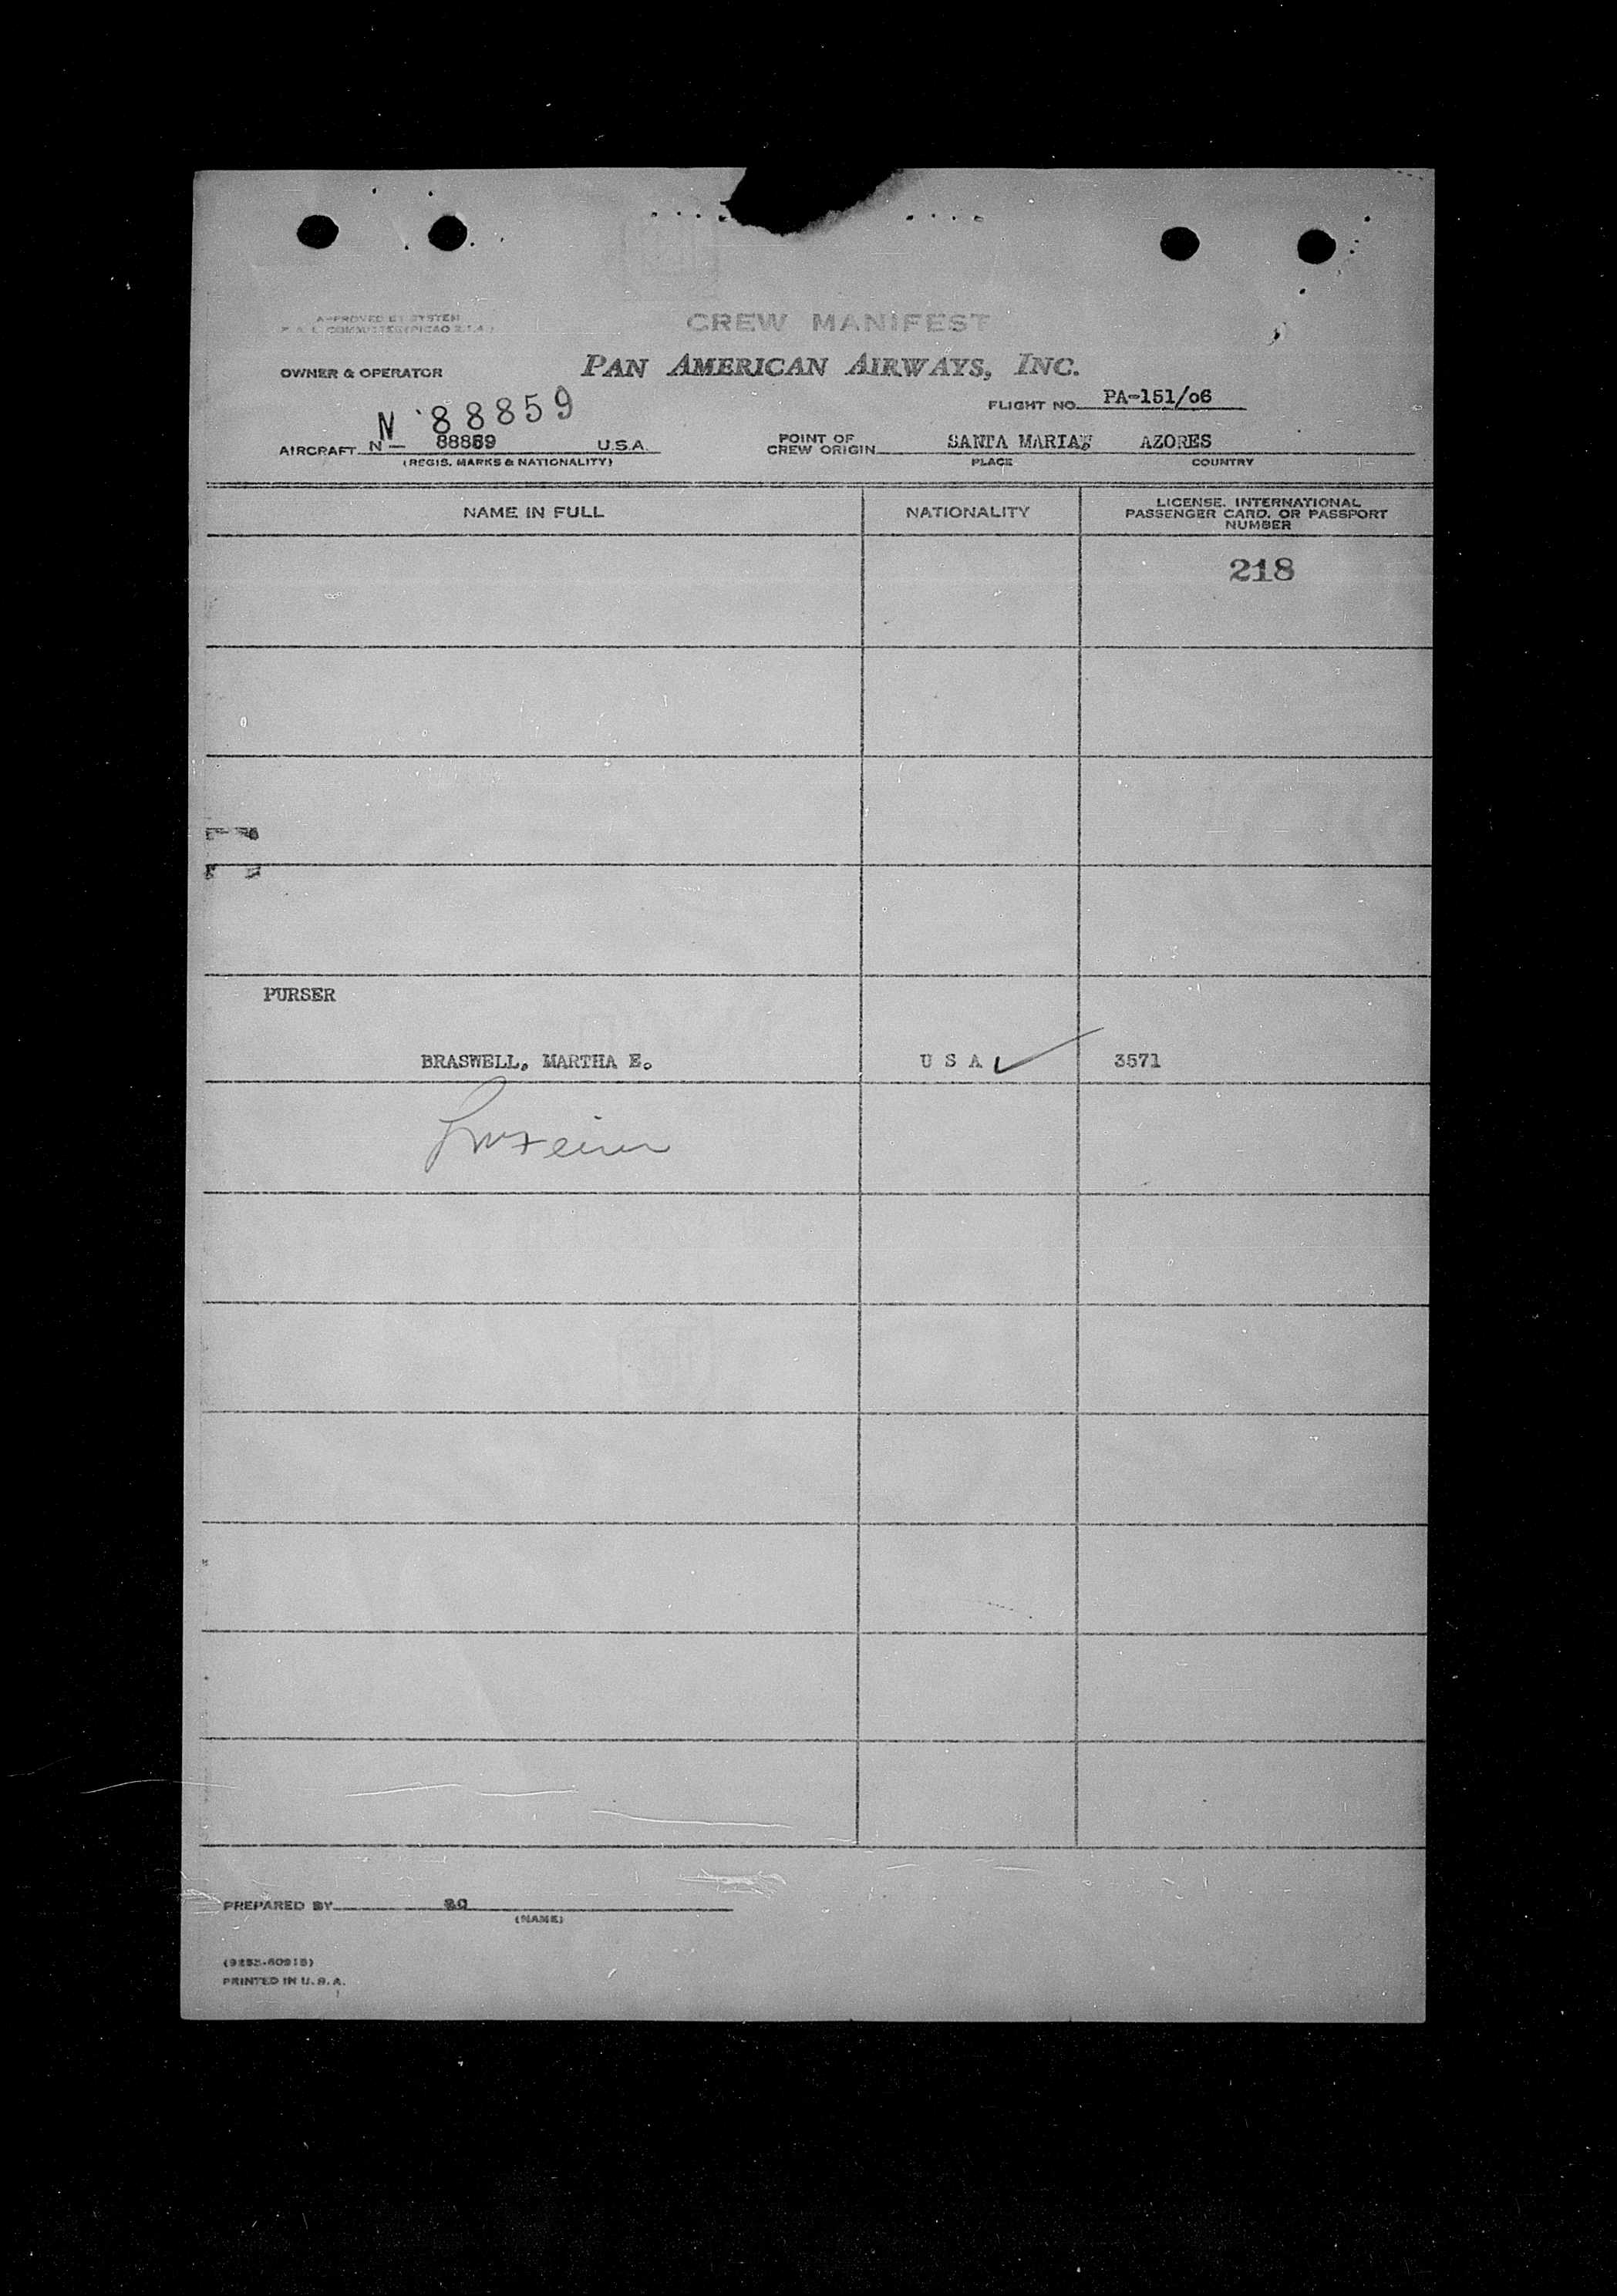 APPROVED BY SYSTEM
CREW MANIFEST
PAN AMERICAN AIRWAYS, INC.
OWNER & OPERATOR
N 88859
FLIGHT NO. PA-151/06
AIRCRAFT N— 88859 U.S.A.
(REGIS. MARKS & NATIONALITY)
POINT OF
CREW ORIGIN SANTA MARIA, AZORES
PLACE COUNTRY
NAME IN FULL
NATIONALITY
LICENSE, INTERNATIONAL
PASSENGER CARD, OR PASSPORT
NUMBER
218
PURSER
BRASWELL, MARTHA E. U S A 3571
PREPARED BY
(NAME)
PRINTED IN U.S.A.